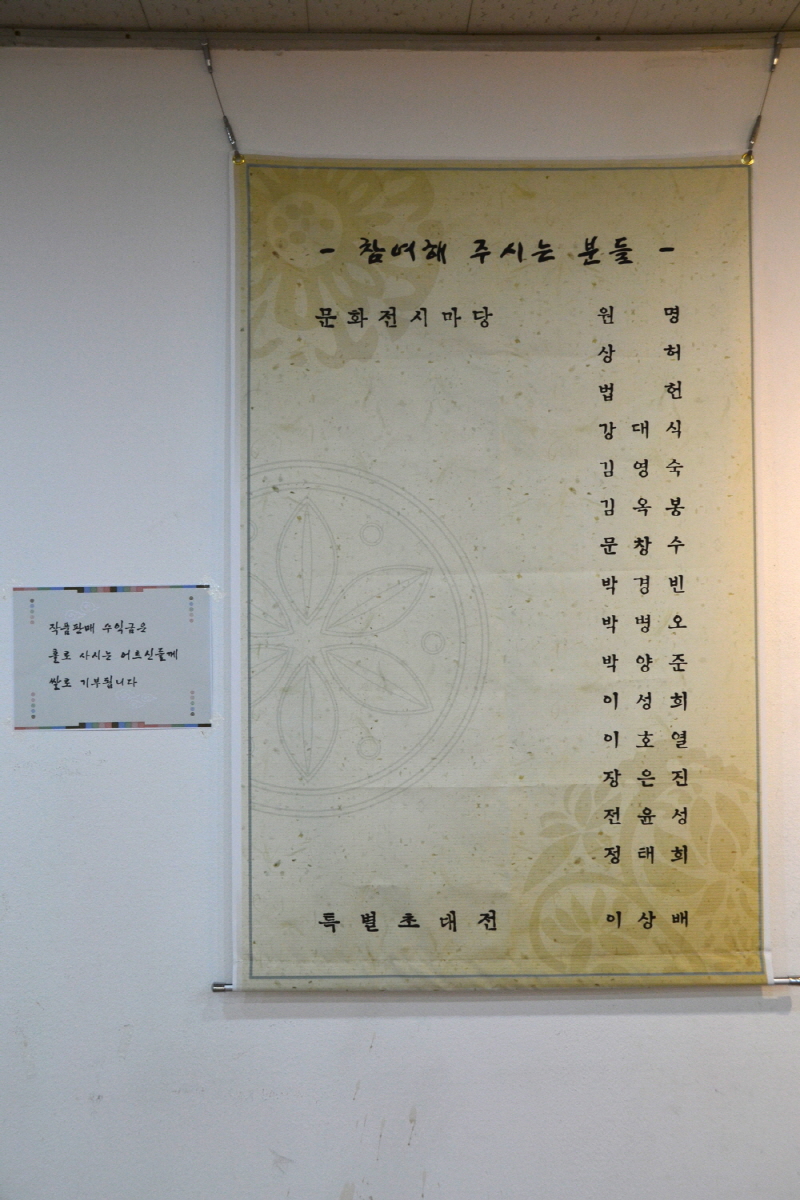 - 참여해 주시는 분들 -
문화전시마당 원 명
상 허
법 헌
강 대 식
김 영 숙
김 옥 봉
문 창 수
박 경 빈
박 병 오
박 양 준
이 성 희
이 호 열
장 은 진
전 윤 성
정 태 희
특별초대전 이 상 배
작품판매 수익금은
홀로 사시는 어르신들께
쌀로 기부됩니다